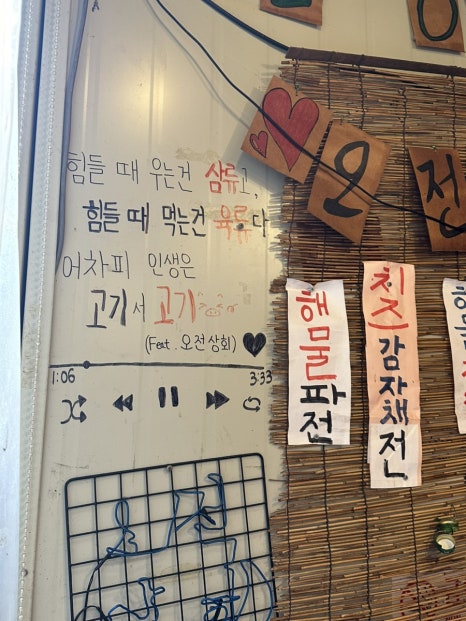 힘들 때 우는건 삼류고,
힘들 때 먹는건 육류다
어차피 인생은
고기서 고기
(Feat. 오전상회)
1:06 3:33
오전
해물파전
치즈감자채전
오전